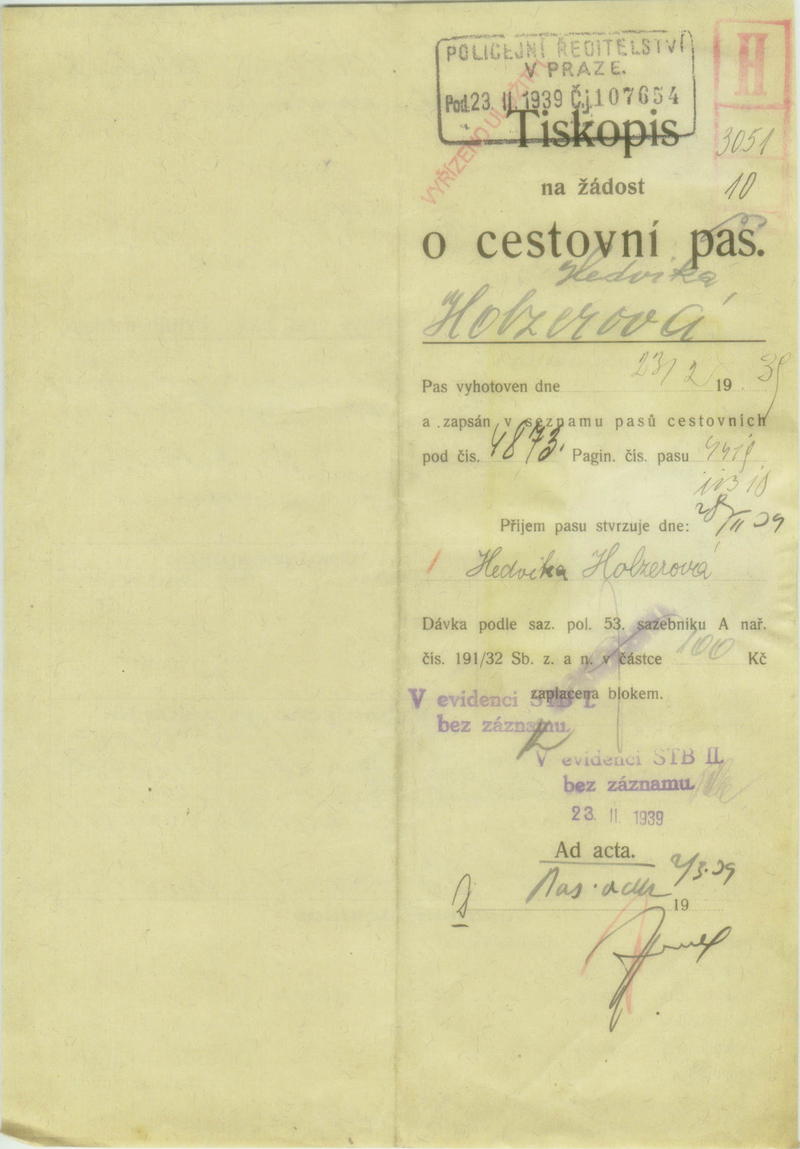 POLICEJNÍ ŘEDITELSTVÍ
V PRAZE.
Pod. 23. II. 1939 Č.j. 107654
H
Tiskopis
3051
na žádost
10
o cestovní pas.
Hedvika
Holzerová
Pas vyhotoven dne 23/2 19 39
a zapsán v seznamu pasů cestovních
pod čís. 4873. Pagin. čís. pasu
Příjem pasu stvrzuje dne: 28/II 39
Hedvika Holzerová
Dávka podle saz. pol. 53. sazebníku A nař.
čís. 191/32 Sb. z. a n. v částce 100 Kč
zaplacena blokem.
V evidenci STB I.
bez záznamu.
V evidenci STB II.
bez záznamu.
23. II 1939
Ad acta.
2/3.39
19